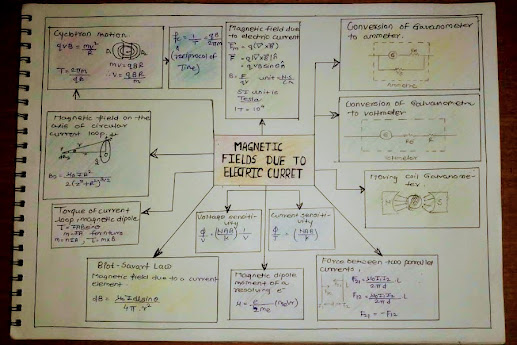 Cyclotron motion
qvB = mv²/R
mv = qBR
v = qBR/m
T = 2πm/qB
fc = 1/T = qB/2πm
(reciprocal of
Time)
Magnetic field due
to electric current
Fm = q(V×B)
= qvBsinθ n̂
B = F/qv
SI unit is
Tesla
Conversion of Galvanometer
to ammeter.
G
Ammeter
Conversion of Galvanometer
to voltmeter
G
Voltmeter
Magnetic field on the
axis of circular
current loop.
MAGNETIC
FIELDS DUE TO
ELECTRIC CURRET
Moving coil Galvanome-
ter.
N
S
Torque of current
loop, magnetic dipole
Voltage sensiti-
vity
ϕ/V = (NAB/K) 1/V
Current sensiti-
vity
Biot-Savart Law
Magnetic field due to a current
element
dB = μ₀Idlsinθ/4π.r²
Magnetic dipole
moment of a
revolving e⁻
Force between two parallel
currents,
F21 = μ₀I1I2/2πd . L
F12 = μ₀I1I2/2πd . L
F21 = -F12